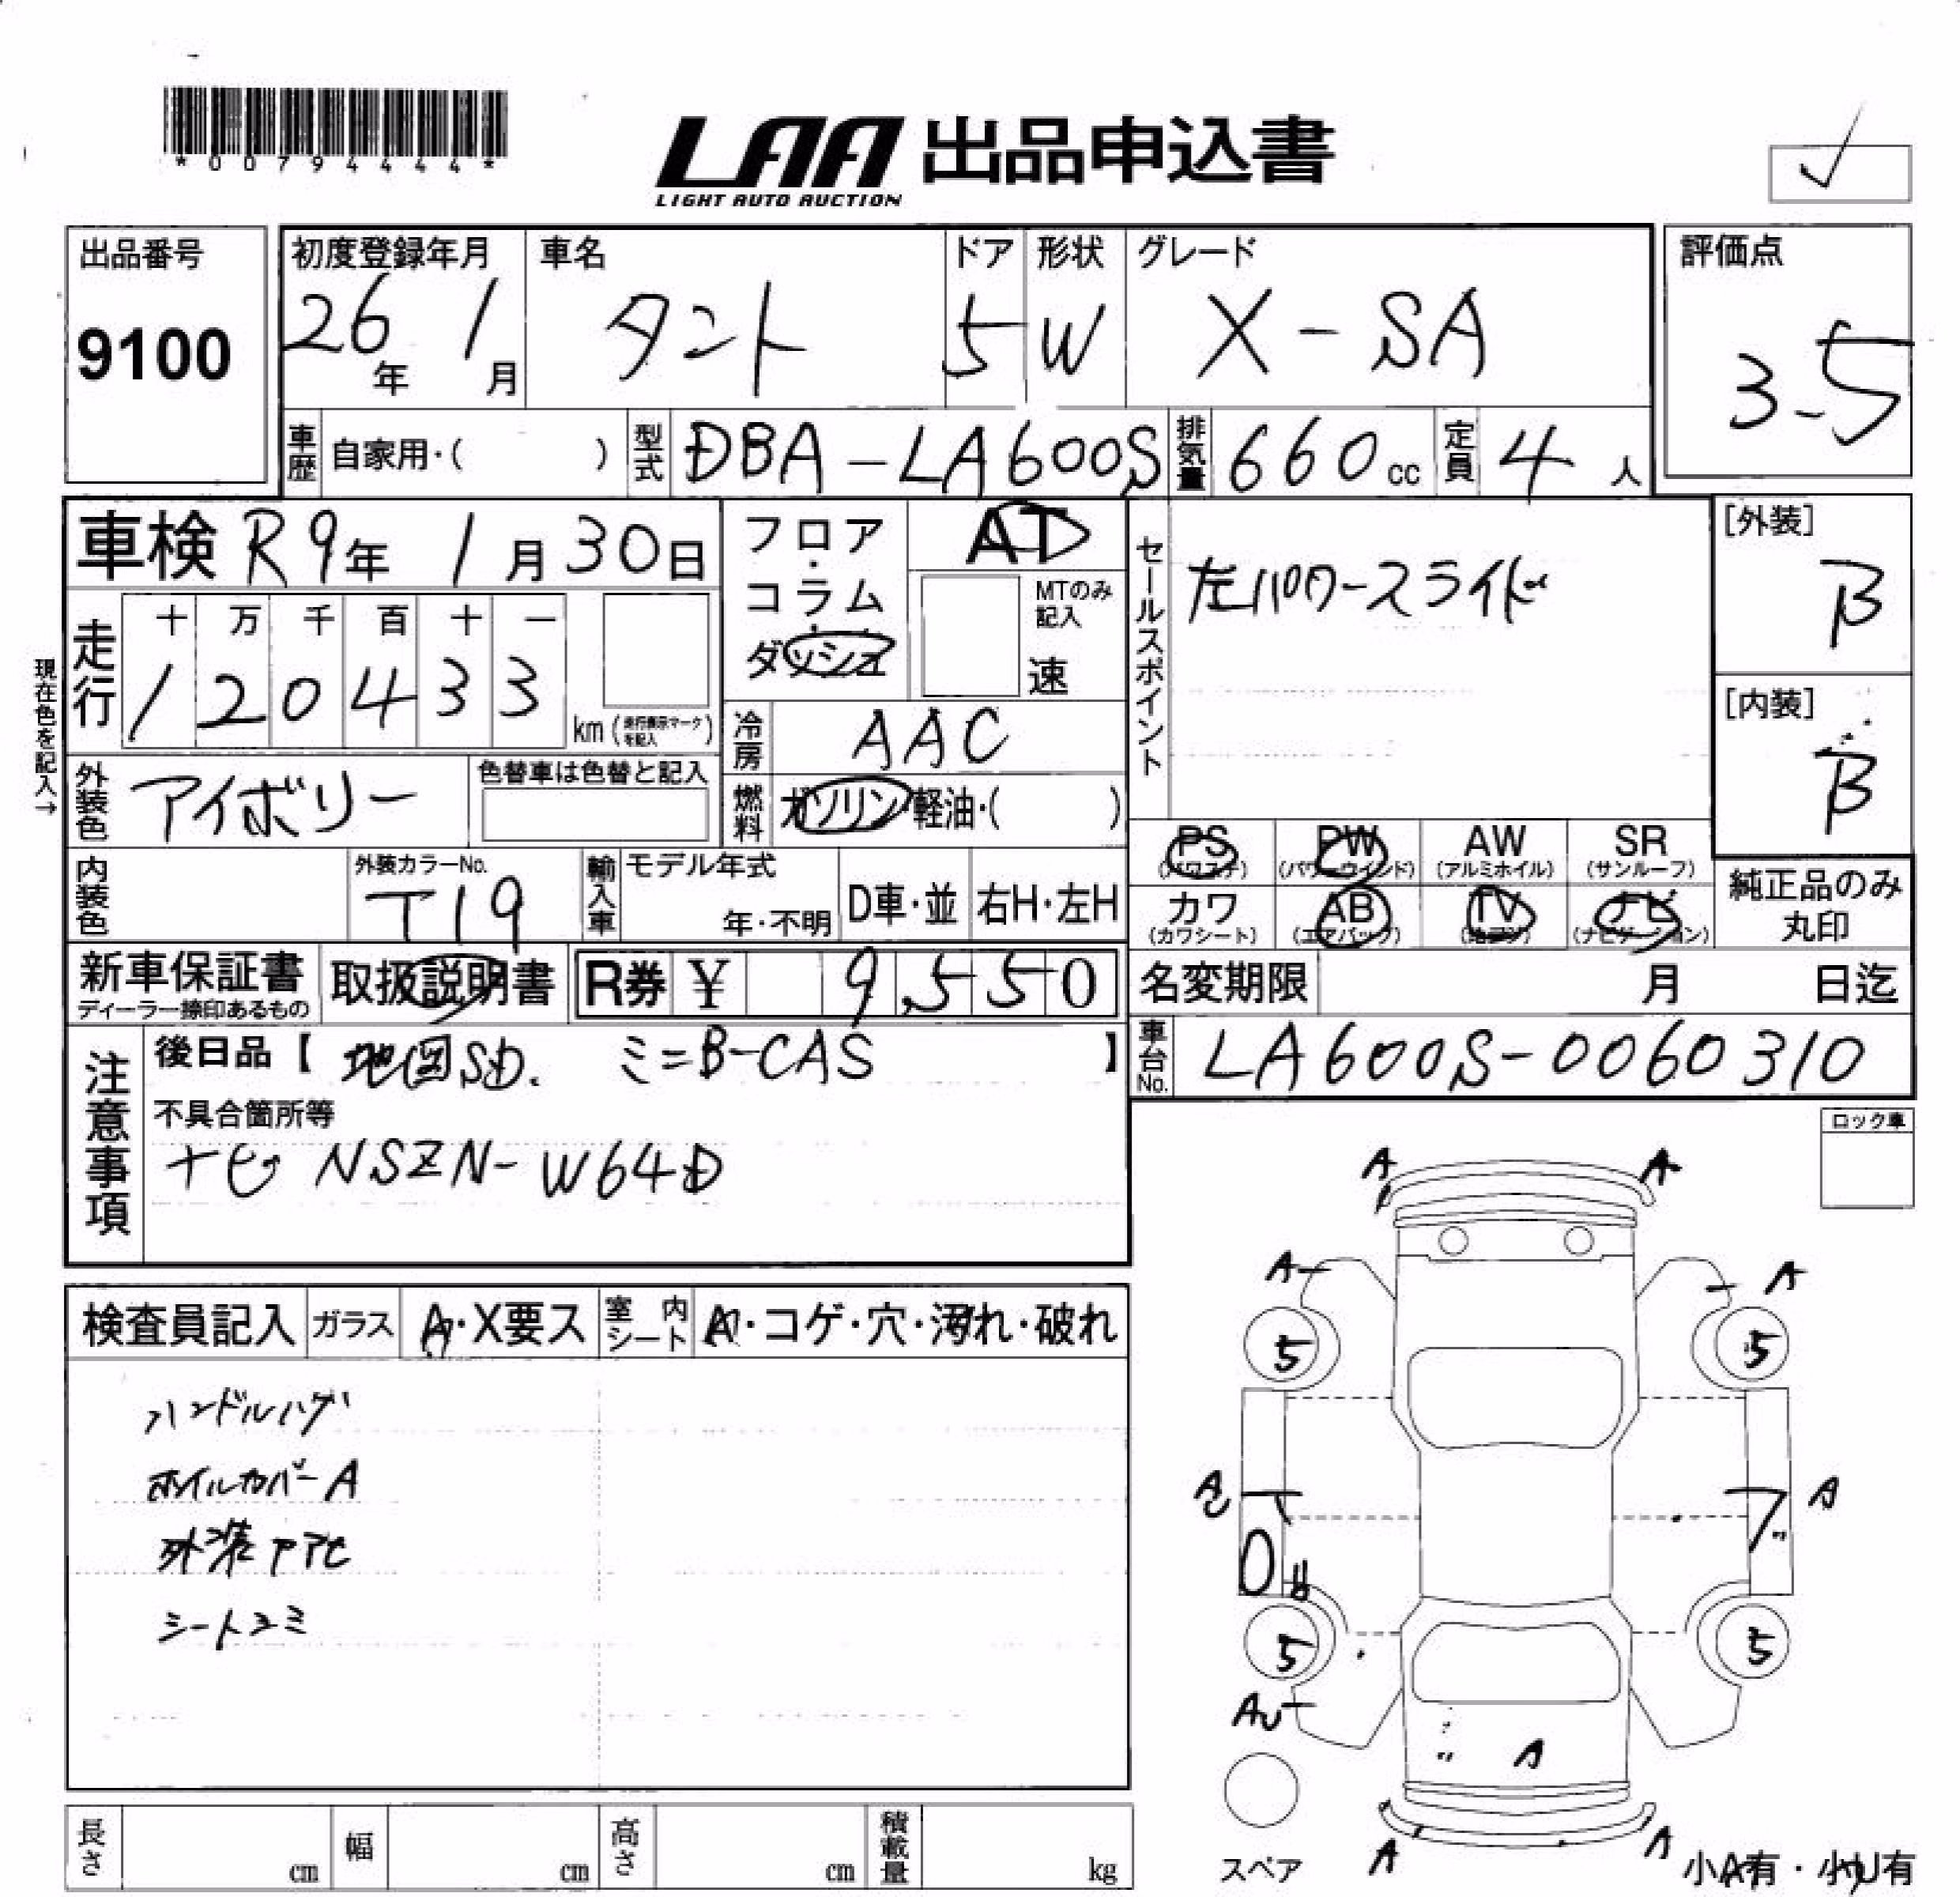 *00794444*
LAA 出品申込書
LIGHT AUTO AUCTION
出品番号
9100
初度登録年月
26年 1月
車名
タント
ドア
5
形状
W
グレード
X-SA
評価点
3.5
車歴 自家用・( )
型式 DBA-LA600S
排気量 660cc
定員 4人
車検 R9年 1月30日
フロア・コラム・ダッシュ
AT
MTのみ記入
速
セールスポイント
左パワースライド
[外装]
B
[内装]
B
現在色を記入→
走行
十 万 千 百 十 一
1 2 0 4 3 3
km (走行表示マークを記入)
冷房 AAC
外装色 アイボリー
色替車は色替と記入
燃料 ガソリン・軽油・( )
内装色
外装カラーNo.
T19
輸入車
モデル年式
年・不明
D車・並
右H・左H
PS (パワステ)
PW (パワーウインド)
AW (アルミホイル)
SR (サンルーフ)
カワ (カワシート)
AB (エアバッグ)
TV (地デジ)
ナビ (ナビゲーション)
純正品のみ丸印
新車保証書
ディーラー捺印あるもの
取扱説明書
R券 ¥ 9,550
名変期限 月 日迄
注意事項
後日品【 地図SD. ミニB-CAS 】
車台No. LA600S-0060310
不具合箇所等
ナビ NSZN-W64D
ロック車
検査員記入
ガラス A・X要ス
室内シート A・コゲ・穴・汚れ・破れ
ハンドルハゲ
ホイルカバーA
シートユミ
A A
A A
5 5
A
5 5
A
A A
スペア
小A有・小U有
長さ cm
幅 cm
高さ cm
積載量 kg